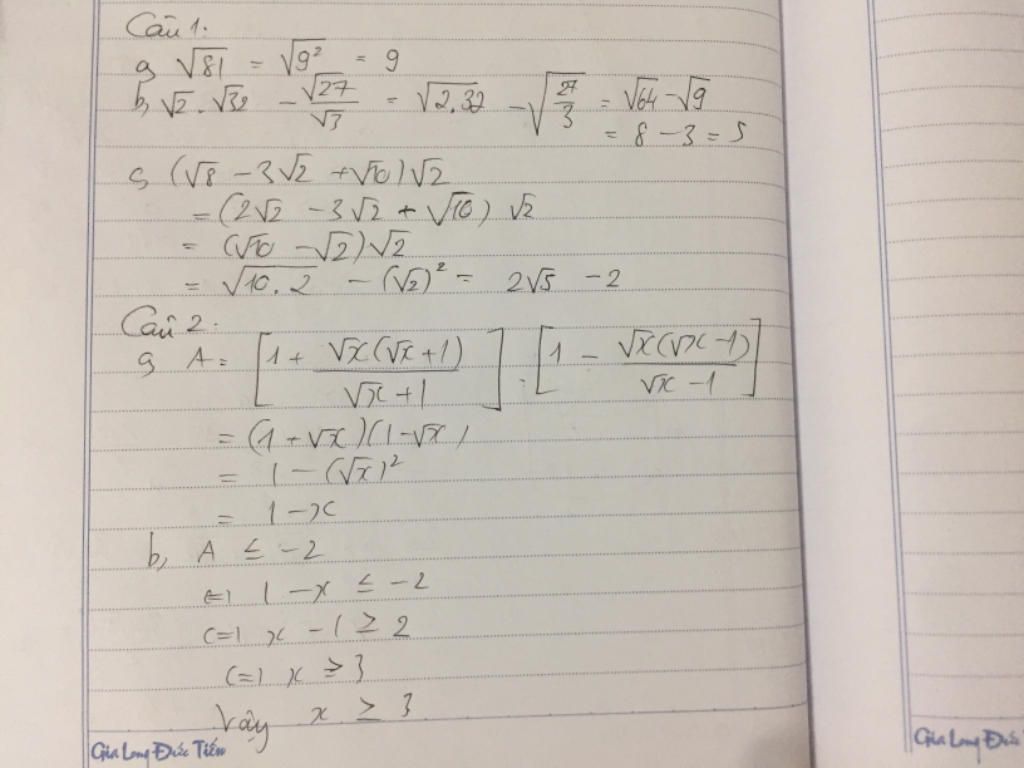 Câu 1.
a, √81 = √9² = 9
b, √2 . √32 - √27/√3 = √2.32 - √27/3 = √64 - √9
= 8 - 3 = 5
c, (√8 - 3√2 + √10)√2
= (2√2 - 3√2 + √10) √2
= (√10 - √2)√2
= √10.2 - (√2)² = 2√5 - 2
Câu 2.
a, A = [1 + √x(√x+1)/√x+1] . [1 - √x(√x-1)/√x-1]
= (1+√x)(1-√x)
= 1 - (√x)²
= 1 - x
b, A ≤ -2
<=> 1 - x ≤ -2
<=> x - 1 ≥ 2
<=> x ≥ 3
Vậy x ≥ 3
Gia Long Đức Tiến
Gia Long Đức